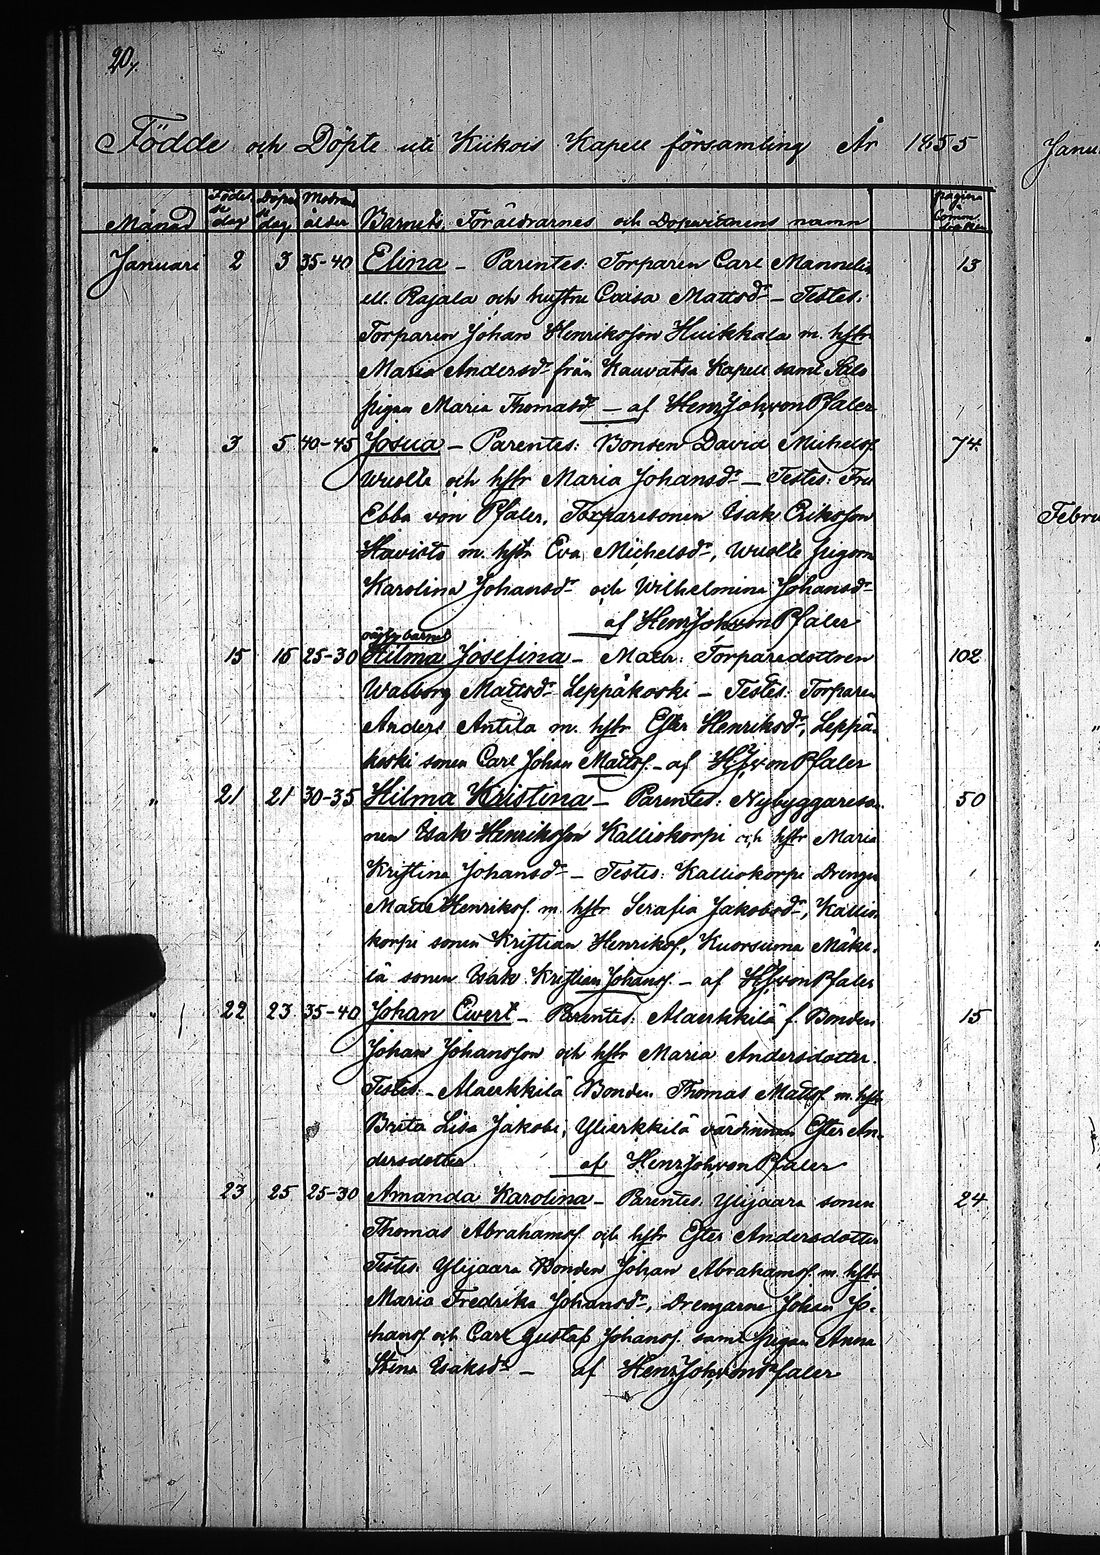 20.
Födde och Döpte uti Kiikois Kapell församling År 1855
Månad Födelse dag Döpelse dag Modrens ålder Barnets, Föräldrarnes och Dopvittnens namn pagina Commu
Januari 2 3 35-40 Elina - Parentes: Torparen Carl Mannelis 13
ell. Rajala och hustru Caisa Mattsdr - Testes:
Torparen Johan Henriksson Huikkala m. hstr
Maria Andersdr från Kauvatsa Kapell samt
pigan Maria Thomasdr - af Henr Joh von Pfaler
" 3 5 40-45 Josua - Parentes: Bonden David Michelss. 74.
Wuolle och hstr Maria Johansdr - Testes: Fru
Ebba von Pfaler, Torparesonen Isak Eriksson
Havisto m. hstr Eva Michelsdr, Wuolle pigorna
Karolina Johansdr och Wilhelmina Johansdr
af Henr Joh von Pfaler
oägta barnet
" 15 16 25-30 Hilma Josefina - Mater: Torparedottren 102
Walborg Mattsdr Leppäkoski - Testes: Torparen
Anders Antila m. hstr Ester Henriksdr, Leppä-
koski sonen Carl Johan Mattss. - af H J von Pfaler
" 21 21 30-35 Hilma Kristina - Parentes: Nybyggareso- 50
nen Isak Henriksson Kalliokorpi och hstr Maria
Kristina Johansdr - Testes: Kalliokorpi Drengen
Matts Henrikss. m. hstr Serafia Jakobsdr, Kallio-
korpi sonen Kristian Henrikss, Kuorsuma Mäke-
lä sonen Isak Kristian Johanss. - af H J von Pfaler
" 22 23 35-40 Johan Evert - Parentes: Alaerkkilä f. Bonden 15
Johan Johansson och hstr Maria Andersdotter.
Testes - Alaerkkilä Bonden Thomas Mattss. m. hstr
Brita Lisa Jakobs, Ylierkkilä värdinnan Ester An-
dersdotter af Henr Joh von Pfaler
" 23 25 25-30 Amanda Karolina - Parentes: Ylijaara sonen 24
Thomas Abrahamss. och hstr Ester Andersdotter
Testes: Ylijaara Bonden Johan Abrahamss. m. hstr
Maria Fredrika Johansdr, Drengarne Johan Jo-
hanss och Carl Gustaf Johanss. samt pigan Anna
Stina Isaksdr - af Henr Joh von Pfaler
Janu
Febru